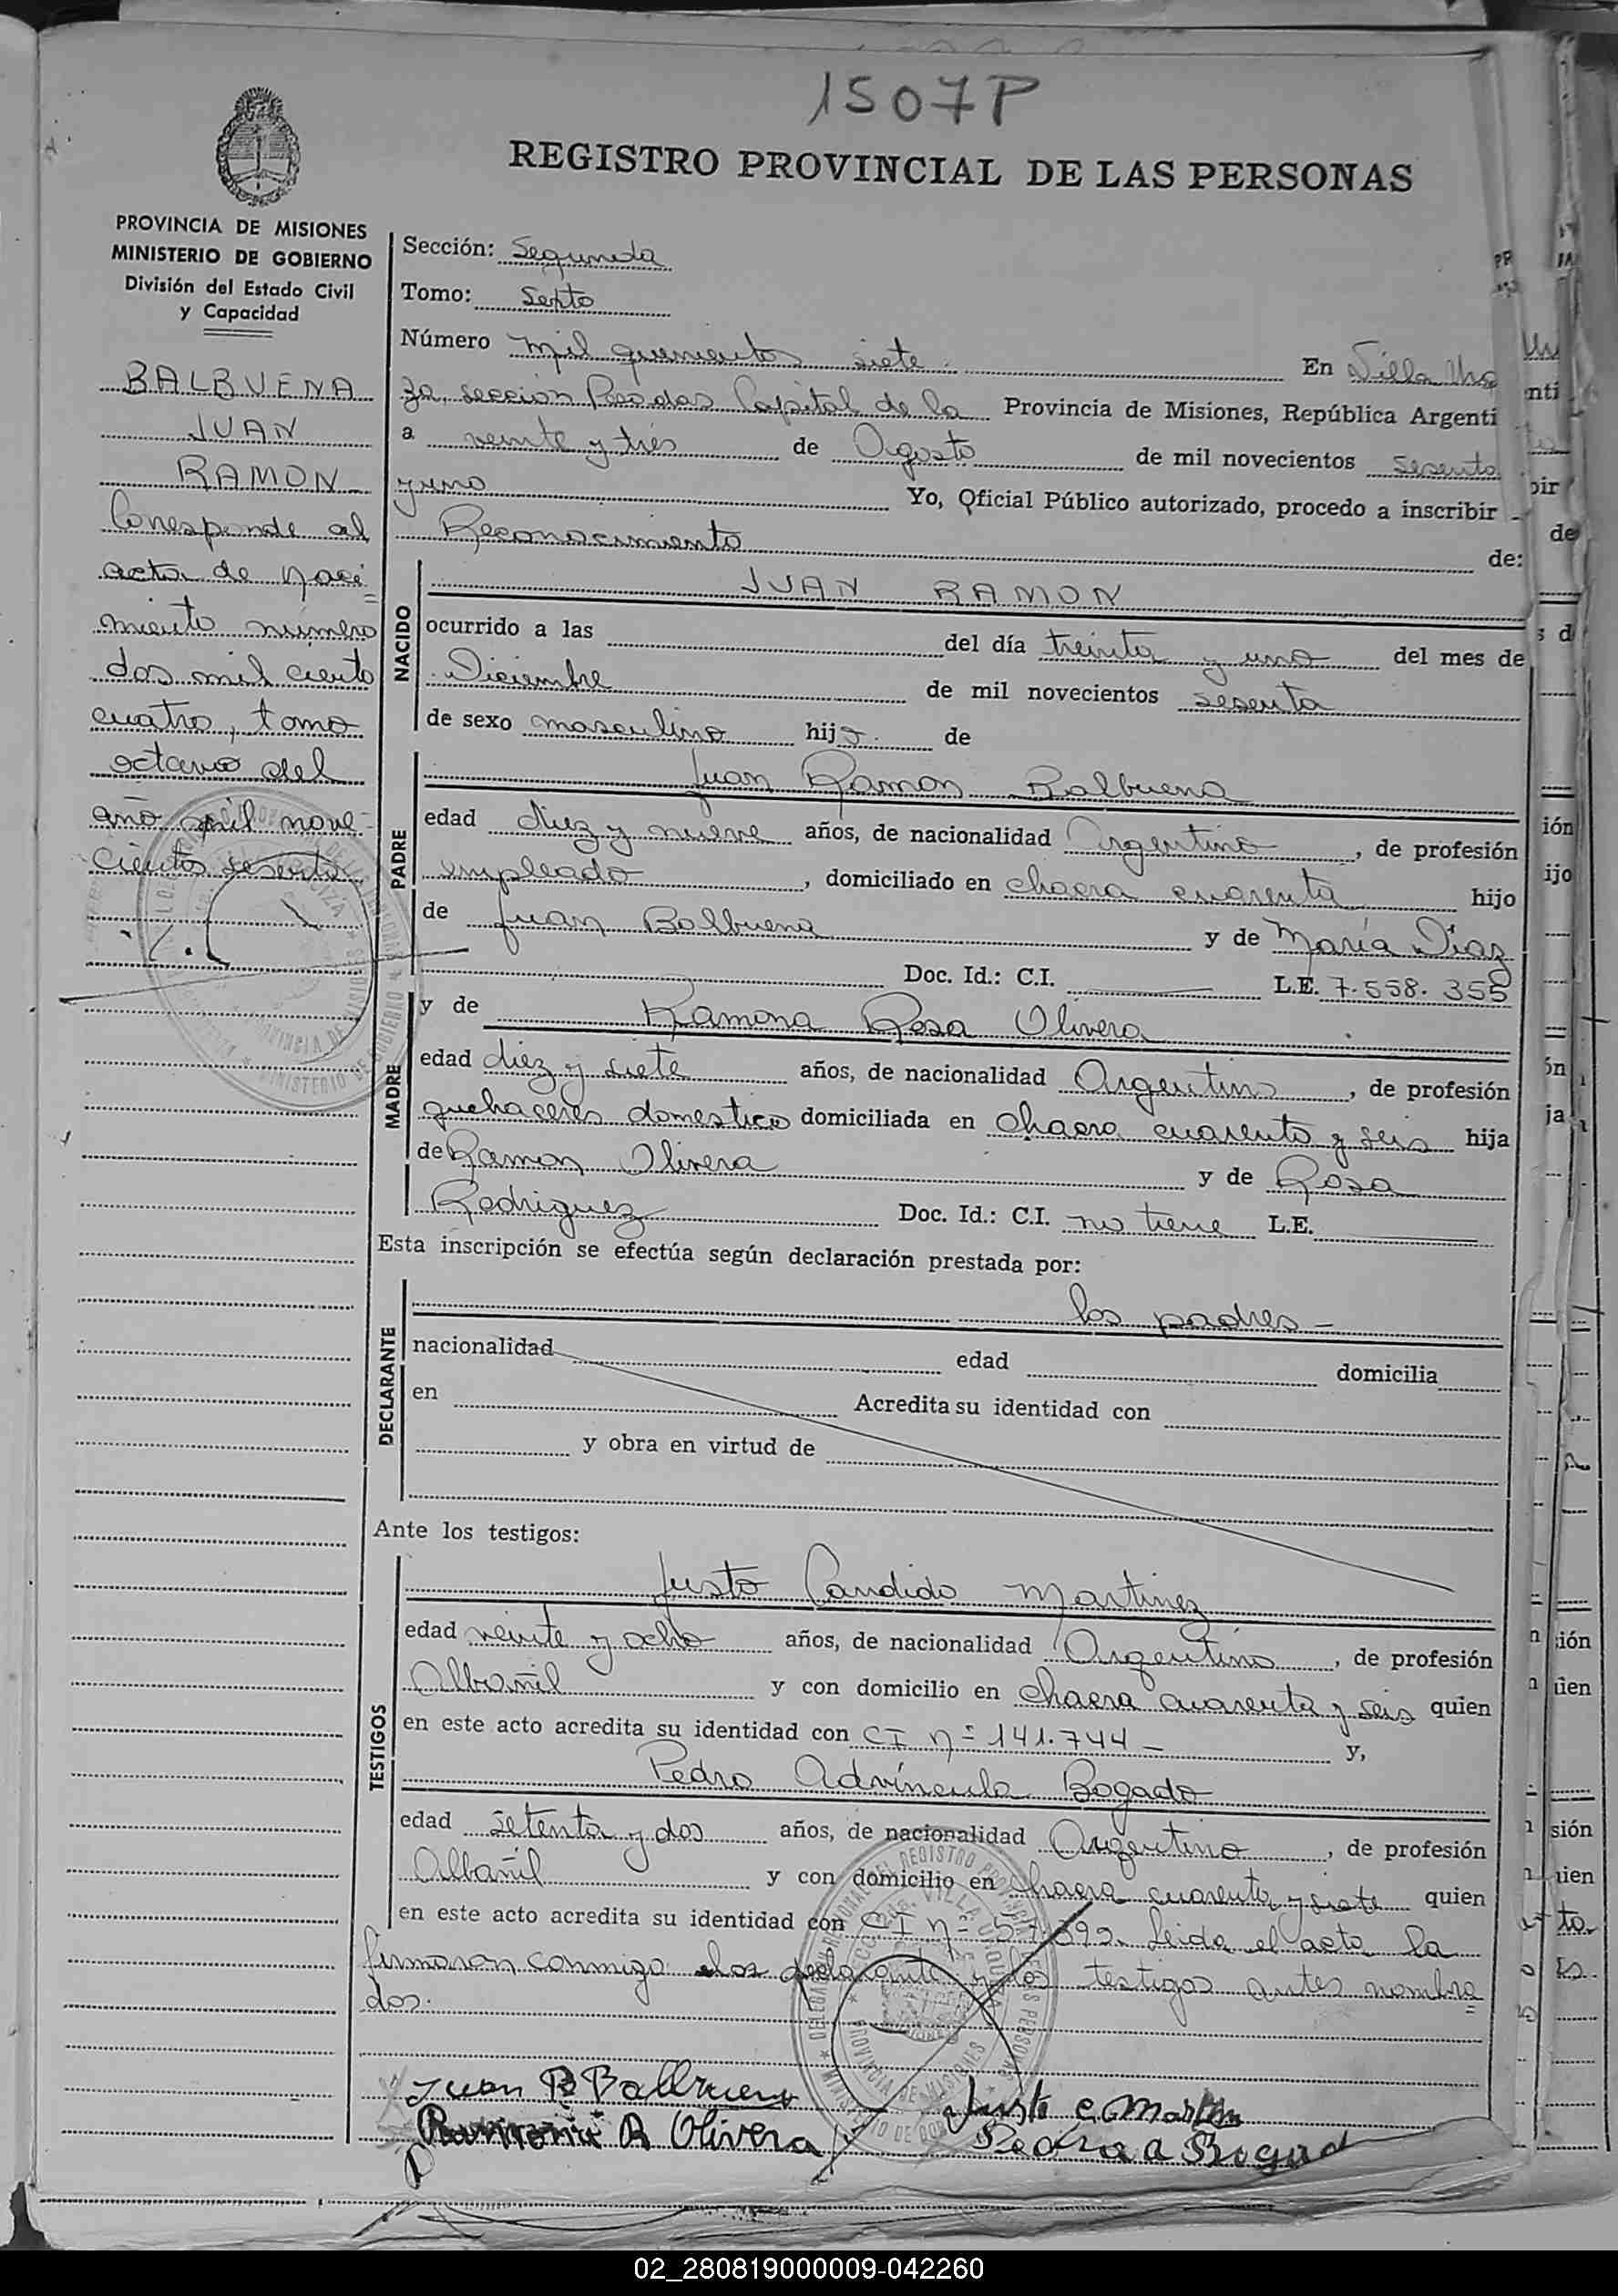 1507P
REGISTRO PROVINCIAL DE LAS PERSONAS
PROVINCIA DE MISIONES
MINISTERIO DE GOBIERNO
División del Estado Civil
y Capacidad
BALBUENA
JUAN
RAMON
Corresponde al
acta de naci
miento número
dos mil ciento
cuatro, tomo
octavo del
año mil nove-
cientos sesenta
Sección: Segunda
Tomo: Sexto
Número mil quinientos siete. En Villa Urq
za, sección Posadas Capital de la Provincia de Misiones, República Argenti
a veinte y tres de Agosto de mil novecientos sesenta
y uno Yo, Oficial Público autorizado, procedo a inscribir
Reconocimiento de:
NACIDO
JUAN RAMON
ocurrido a las del día treinta y uno del mes de
Diciembre de mil novecientos sesenta
de sexo masculino hijo de
PADRE
Juan Ramon Balbuena
edad diez y nueve años, de nacionalidad Argentino, de profesión
empleado, domiciliado en chacra cuarenta hijo
de Juan Balbuena y de María Diaz
Doc. Id.: C.I. L.E. 7.558.355
MADRE
y de Ramona Rosa Olivera
edad diez y siete años, de nacionalidad Argentina, de profesión
quehaceres domestico domiciliada en chacra cuarenta y seis hija
de Ramon Olivera y de Rosa
Rodriguez Doc. Id.: C.I. no tiene L.E.
Esta inscripción se efectúa según declaración prestada por:
DECLARANTE
los padres -
nacionalidad edad domicilia
en Acredita su identidad con
y obra en virtud de
Ante los testigos:
TESTIGOS
Justo Candido Martinez
edad veinte y ocho años, de nacionalidad Argentino, de profesión
Albañil y con domicilio en chacra cuarenta y seis quien
en este acto acredita su identidad con CI nº 141.744 - y,
Pedro Advíncula Bogado
edad setenta y dos años, de nacionalidad Argentino, de profesión
Albañil y con domicilio en chacra cuarenta y siete quien
en este acto acredita su identidad con CI nº Leida el acta la
firmaron conmigo los y los testigos antes nombra
dos.
Juan R Balbuena
R Olivera
Justo C Martin
Pedro a Bogad
02_280819000009-042260